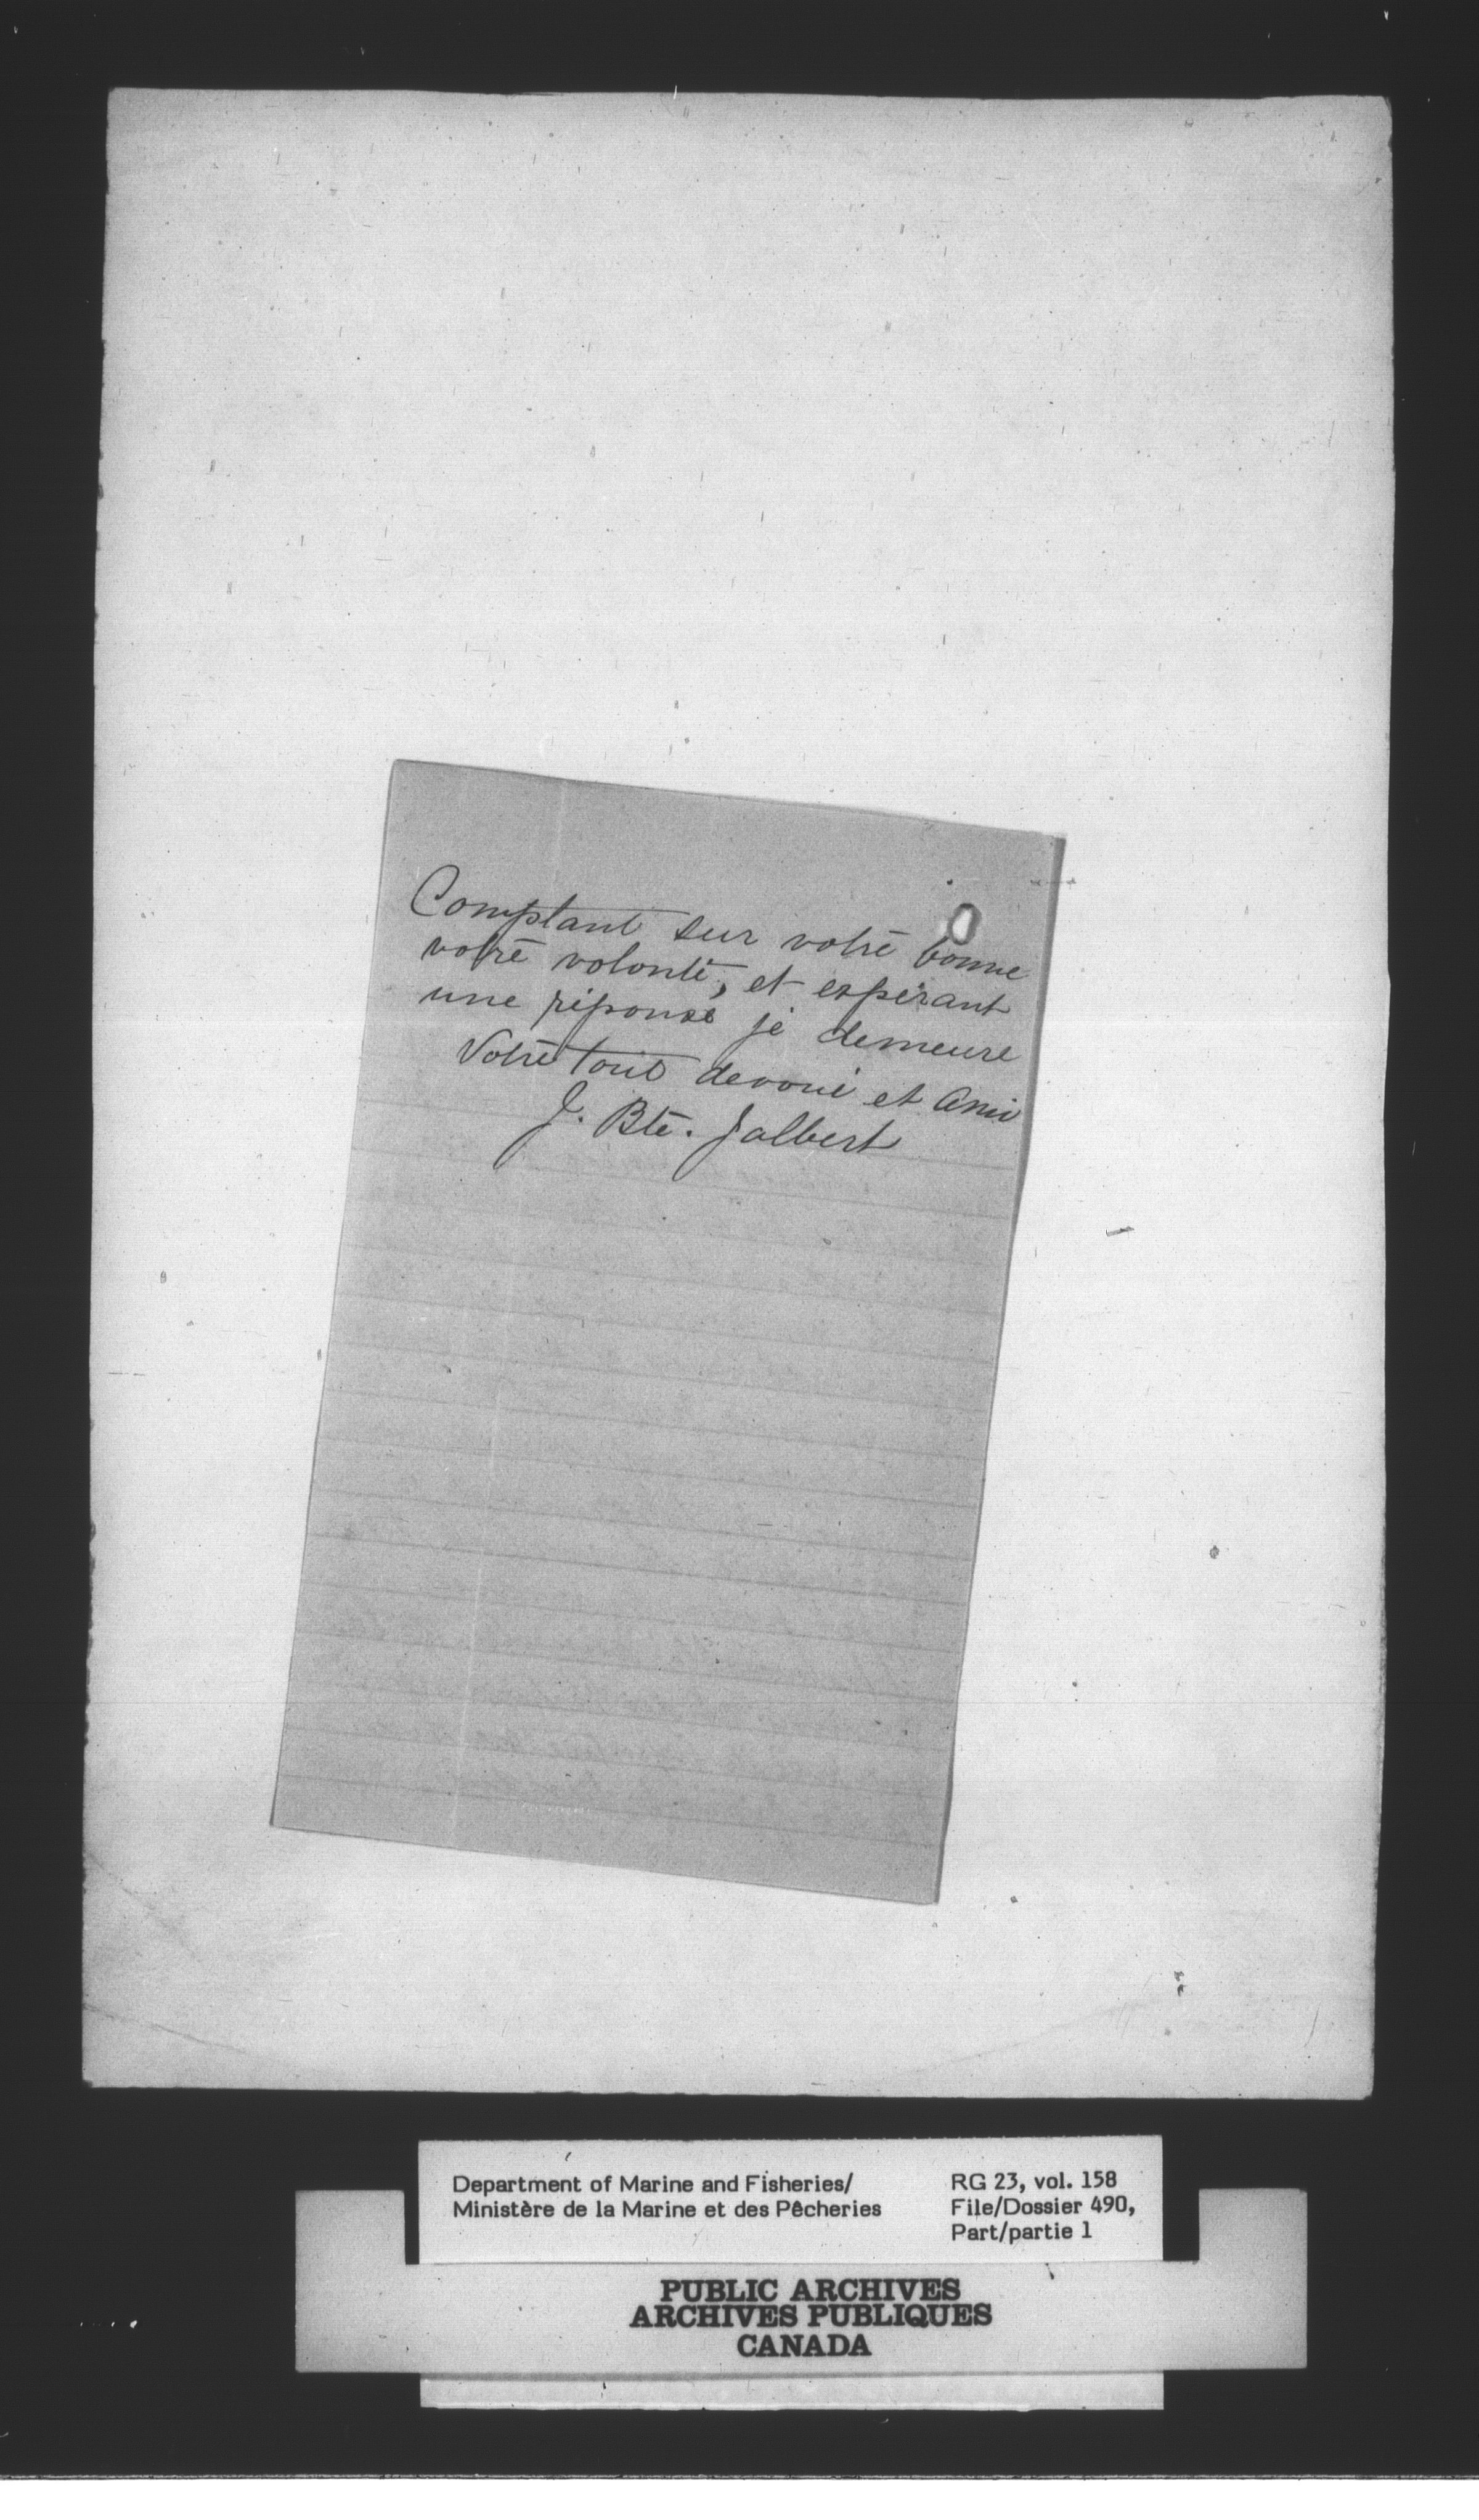 Comptant sur votre bonne
votre volonté, et espérant
une réponse je demeure
Votre tout devoué et Ami
J. Bte. Jalbert
Department of Marine and Fisheries/
Ministère de la Marine et des Pêcheries
RG 23, vol. 158
File/Dossier 490,
Part/partie 1
PUBLIC ARCHIVES
ARCHIVES PUBLIQUES
CANADA